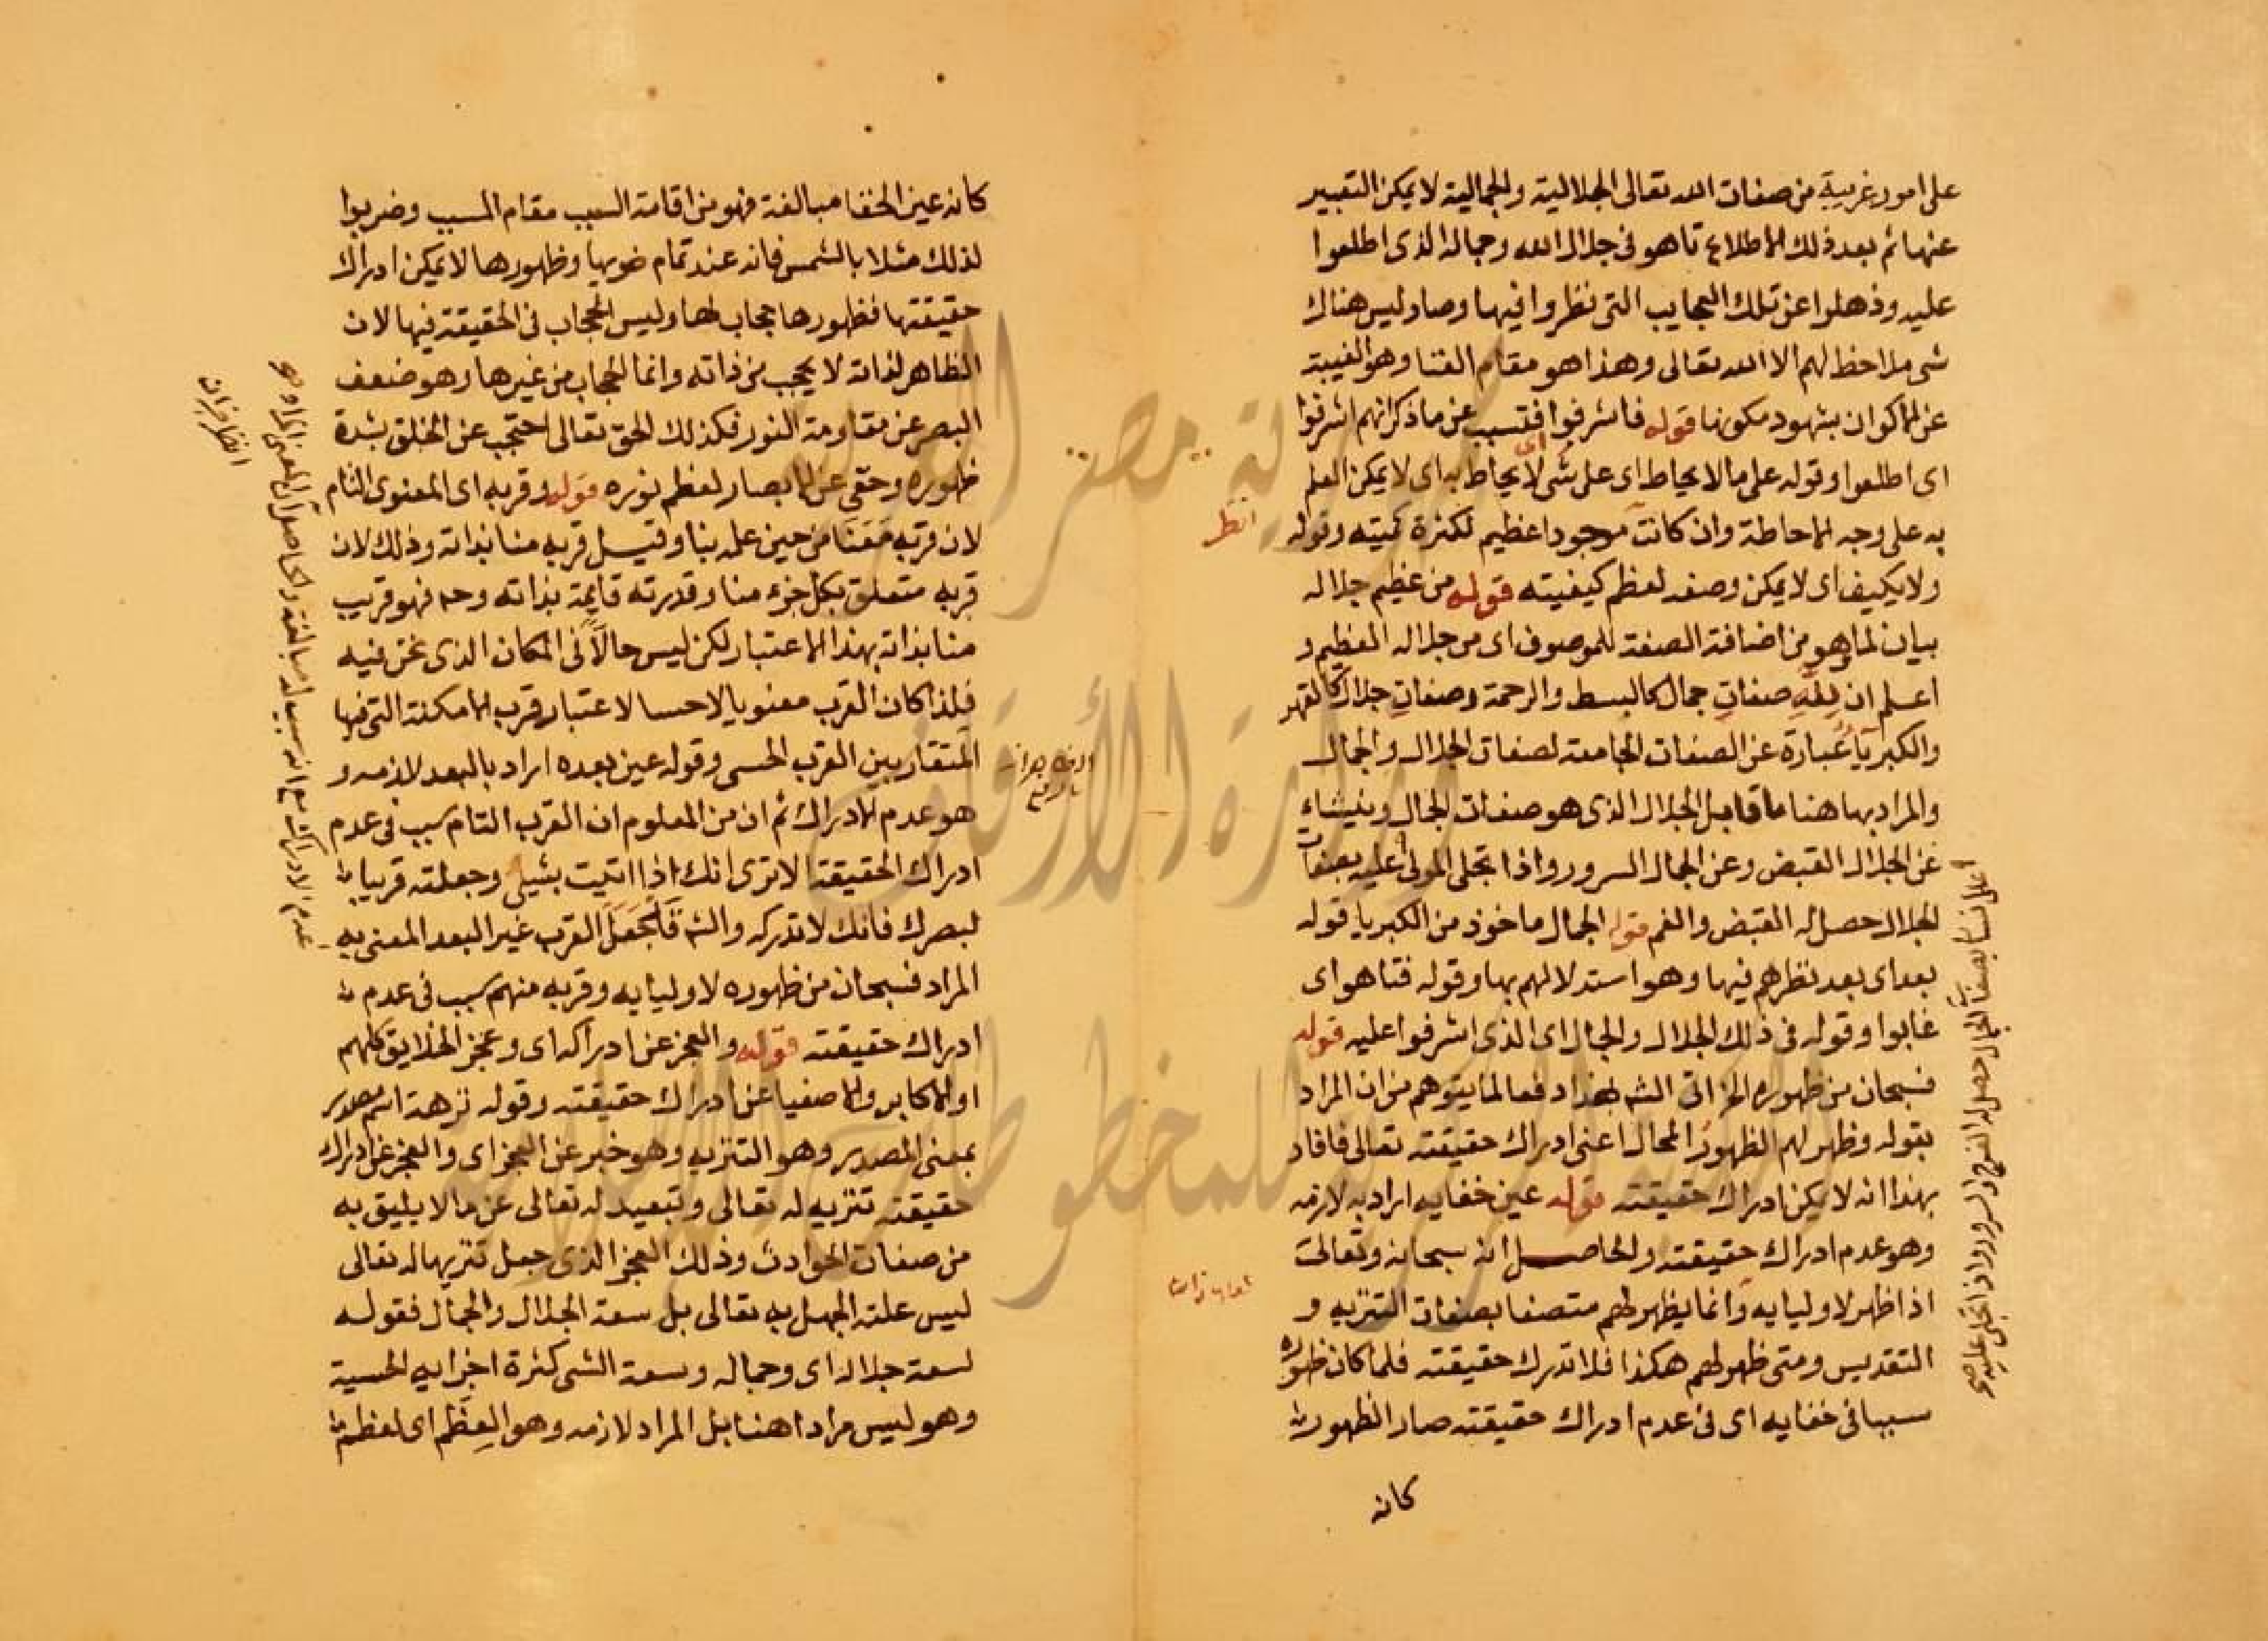 على امور غريبة من صفات الله تعالى الجلالية والجمالية لا يمكن التعبير
عنها ثم بعد ذلك الاطلاع تاهو فى جلال الله وجماله الذى اطلعوا
عليه وذهلوا عن تلك العجايب التى نظروا فيها وصار ليس هناك
شى ملاحظ لهم الا الله تعالى وهذا هو مقام الفنا وهو الغيبة
عن الاكوان بشهود مكونها قوله فاشرفوا فتسبب عن ما ذكر انهم اشرفوا
اى اطلعوا وقوله على ما لا يحاط اى على شى لا يحاط به اى لا يمكن العلم
به على وجه الاحاطة وان كانت موجودا عظيم لكثرة كميته وقوله
ولا يكيف اى لا يمكن وصفه لعظم كيفيته قوله من عظيم جلاله
بيان لما وهو من اضافة الصفة للموصوف اى من جلاله العظيم و
اعلم ان لله صفات جمال كالبسط والرحمة وصفات جلال كالقهر
والكبريا عبارة عن الصفات الجامعة لصفات الجلال والجمال
والمراد بها هنا ما قابل الجلال الذى هو صفات الجمال وينشاء
عن الجلال القبض وعن الجمال السرور واذا تجلى المولى عليه بصفات
الجلال حصل له القبض والغم قوله الجمال ماخوذ من الكبريا قوله
بعد اى بعد نظرهم فيها وهو استدلالهم بها وقوله فتاهوا اى
غابوا وقوله فى ذلك الجلال والجمال اى الذى اشرفوا عليه قوله
فسبحان من ظهوره الخ اتى الشه بهذا دفعا لما يتوهم من ان المراد
بقوله وظهر لهم الظهور المحال اعنى ادراك حقيقته تعالى فافاد
بهذا انه لا يمكن ادراك حقيقته قوله عين خفايه اراد به لازمه
وهو عدم ادراك حقيقته والحاصل انه سبحانه وتعالى
اذا ظهر لاوليايه وانما يظهر لهم متصفا بصفات التنزيه و
التقديس ومتى ظهر لهم هكذا فلا تدرك حقيقته فلما كان ظهوره
سببا فى خفايه اى فى عدم ادراك حقيقته صار الظهور
كانه
انظر
كانه عين الخفا مبالغة فهو من اقامة السبب مقام المسبب وضربوا
لذلك مثلا بالشمس فانه عند تمام ضويها وظهورها لا يمكن ادراك
حقيقتها فظهورها حجاب لها وليس الحجاب فى الحقيقة فيها لان
الظاهر لذاته لا يحجب من ذاته وانما الحجاب من غيرها وهو ضعف
البصر عن مقاومة النور فكذلك الحق تعالى احتجب عن الخلق بشدة
ظهوره وخفى عن الابصار لعظم نوره قوله وقربه اى المعنوى التام
لان قربه معنا من حين علمه بنا وقيل قربه منا بذاته وذلك لان
قربه متعلق بكل جزء منا وقدرته قايمة بذاته وح فهو قريب
منا بذاته بهذا الاعتبار لكن ليس حالا فى المكان الذى نحن فيه
فلذا كان القرب معنويا لا حسا لاعتبار قرب الامكنة التى فيها
المتقاربين القرب الحسى وقوله عين بعده اراد بالبعد لازمه و
هو عدم الادراك ثم ان من المعلوم ان القرب التام سبب فى عدم
ادراك الحقيقة الا ترى انك اذا اتيت بشىء وجعلته قريبا
لبصرك فانك لا تدركه والشه فالجعل القرب غير البعد المعنى به
المراد فسبحان من ظهوره لاوليايه وقربه منهم سبب فى عدم
ادراك حقيقته قوله والعجز عن ادراكه اى وعجز الخلايق كلهم
او الاكابر والاصفيا عن ادراك حقيقته وقوله نزهة اسم مصدر
بمعنى المصدر وهو التنزيه وهو خبر عن العجز اى والعجز عن ادراك
حقيقته تنزيه له تعالى وتبعيد له تعالى عن ما لا يليق به
من صفات الحوادث وذلك العجز الذى جعل تنزيها له تعالى
ليس علته الجهل به تعالى بل سعة الجلال والجمال فقوله
لسعة جلاله اى وجماله وسعة الشى كثرة اجزايه الحسية
وهو ليس مرادا هنا بل المراد لازمه وهو العظم اى لعظم